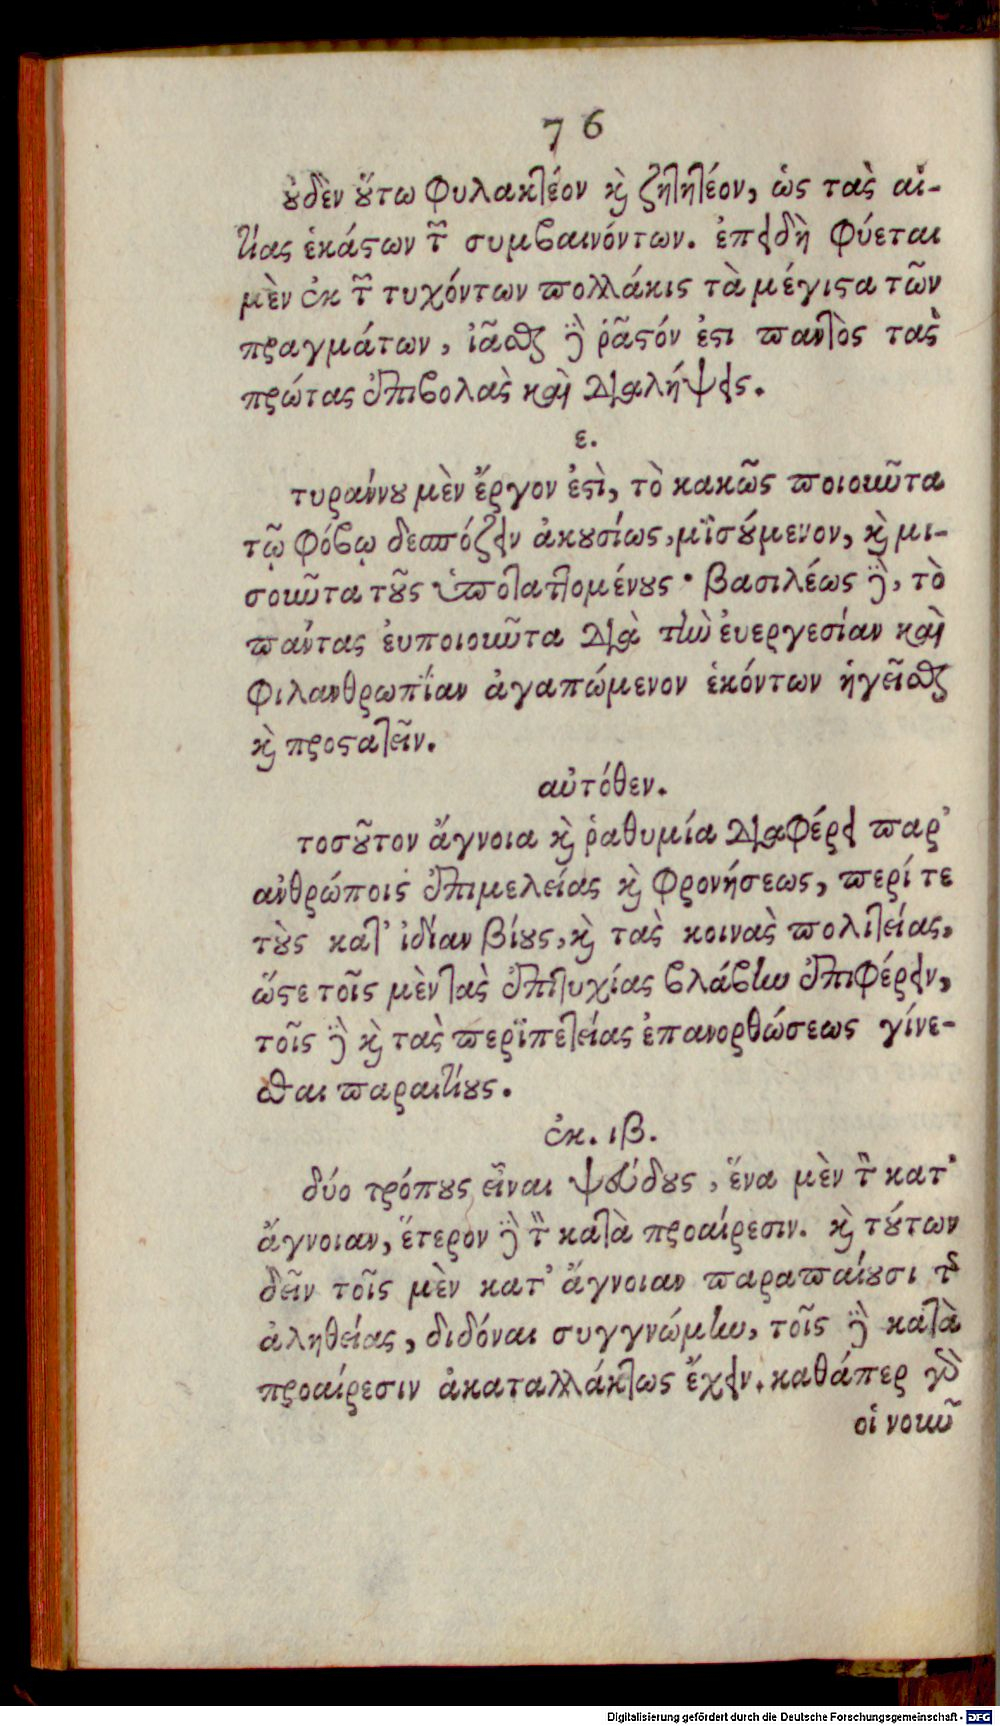 76
ȣ̓δὲν ȣ̔́τω φυλακτέον κ̀ ζητητέον, ὡς τὰς αἰ-
τίας ἑκάϛων τῶν συμβαινόντων. ἐπειδὴ φύεται
μὲν ἐκ τῶν τυχόντων πολλάκις τὰ μέγιϛα τῶν
πραγμάτων, ἰᾶσθαι δὲ ῥᾶϛόν ἐϛι παντὸς τὰς
πρώτας ἐπιβολὰς καὶ διαλήψεις.
ε.
τυράννȣ μὲν ἔργον ἐϛὶ, τὸ κακῶς ποιοιῶτα
τῷ φόβῳ δεσπόζειν ἀκȣσίως, μισȣ́μενον, κ̀ μι-
σοιῶτα τȣ̀ς ὑποταττομένȣς· βασιλέως δὲ, τὸ
πάντας ἐυποιοιῶτα διὰ τὴν ἐυεργεσίαν καὶ
φιλανθρωπίαν ἀγαπώμενον ἑκόντων ἡγεῖσθαι
κ̀ προϛατεῖν.
αὐτόθεν.
τοσȣ͂τον ἄγνοια κ̀ ῥαθυμία διαφέρει παρ'
ἀνθρώποις ἐπιμελείας κ̀ φρονήσεως, περί τε
τȣ̀ς κατ' ἰδίαν βίȣς, κ̀ τὰς κοινὰς πολιτείας,
ὥϛε τοῖς μὲν τὰς ἐπιτυχίας βλάβην ἐπιφέρειν,
τοῖς δὲ κ̀ τὰς περιπετείας ἐπανορθώσεως γίνε-
σθαι παραιτίȣς.
ἐκ. ιβ.
δύο τρόπȣς εἶναι ψεύδȣς, ἕνα μὲν τὸν κατ'
ἄγνοιαν, ἕτερον δὲ τὸν κατὰ προαίρεσιν. κ̀ τȣ́των
δεῖν τοῖς μὲν κατ' ἄγνοιαν παραπαίȣσι τῆς
ἀληθείας, διδόναι συγγνώμην, τοῖς δὲ κατὰ
προαίρεσιν ἀκαταλλάκτως ἔχειν. καθάπερ γὰρ
οἱ νοιῶ
Digitalisierung gefördert durch die Deutsche Forschungsgemeinschaft - DFG